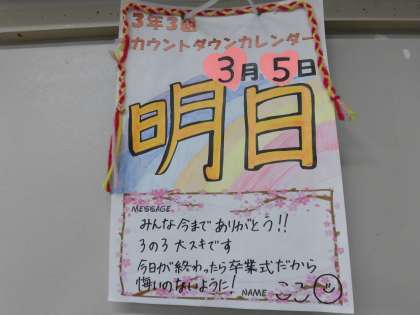 3年3組
カウントダウンカレンダー
3月5日
明日
MESSAGE
みんな今までありがとう!!
3の3 大スキです
今日が終わったら卒業式だから
悔いのないように!
NAME